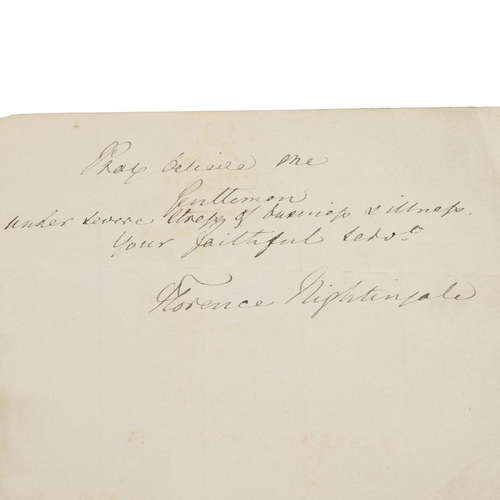 Pray believe me
Gentlemen
under severe stress of business & illness.
Your faithful servt
Florence Nightingale